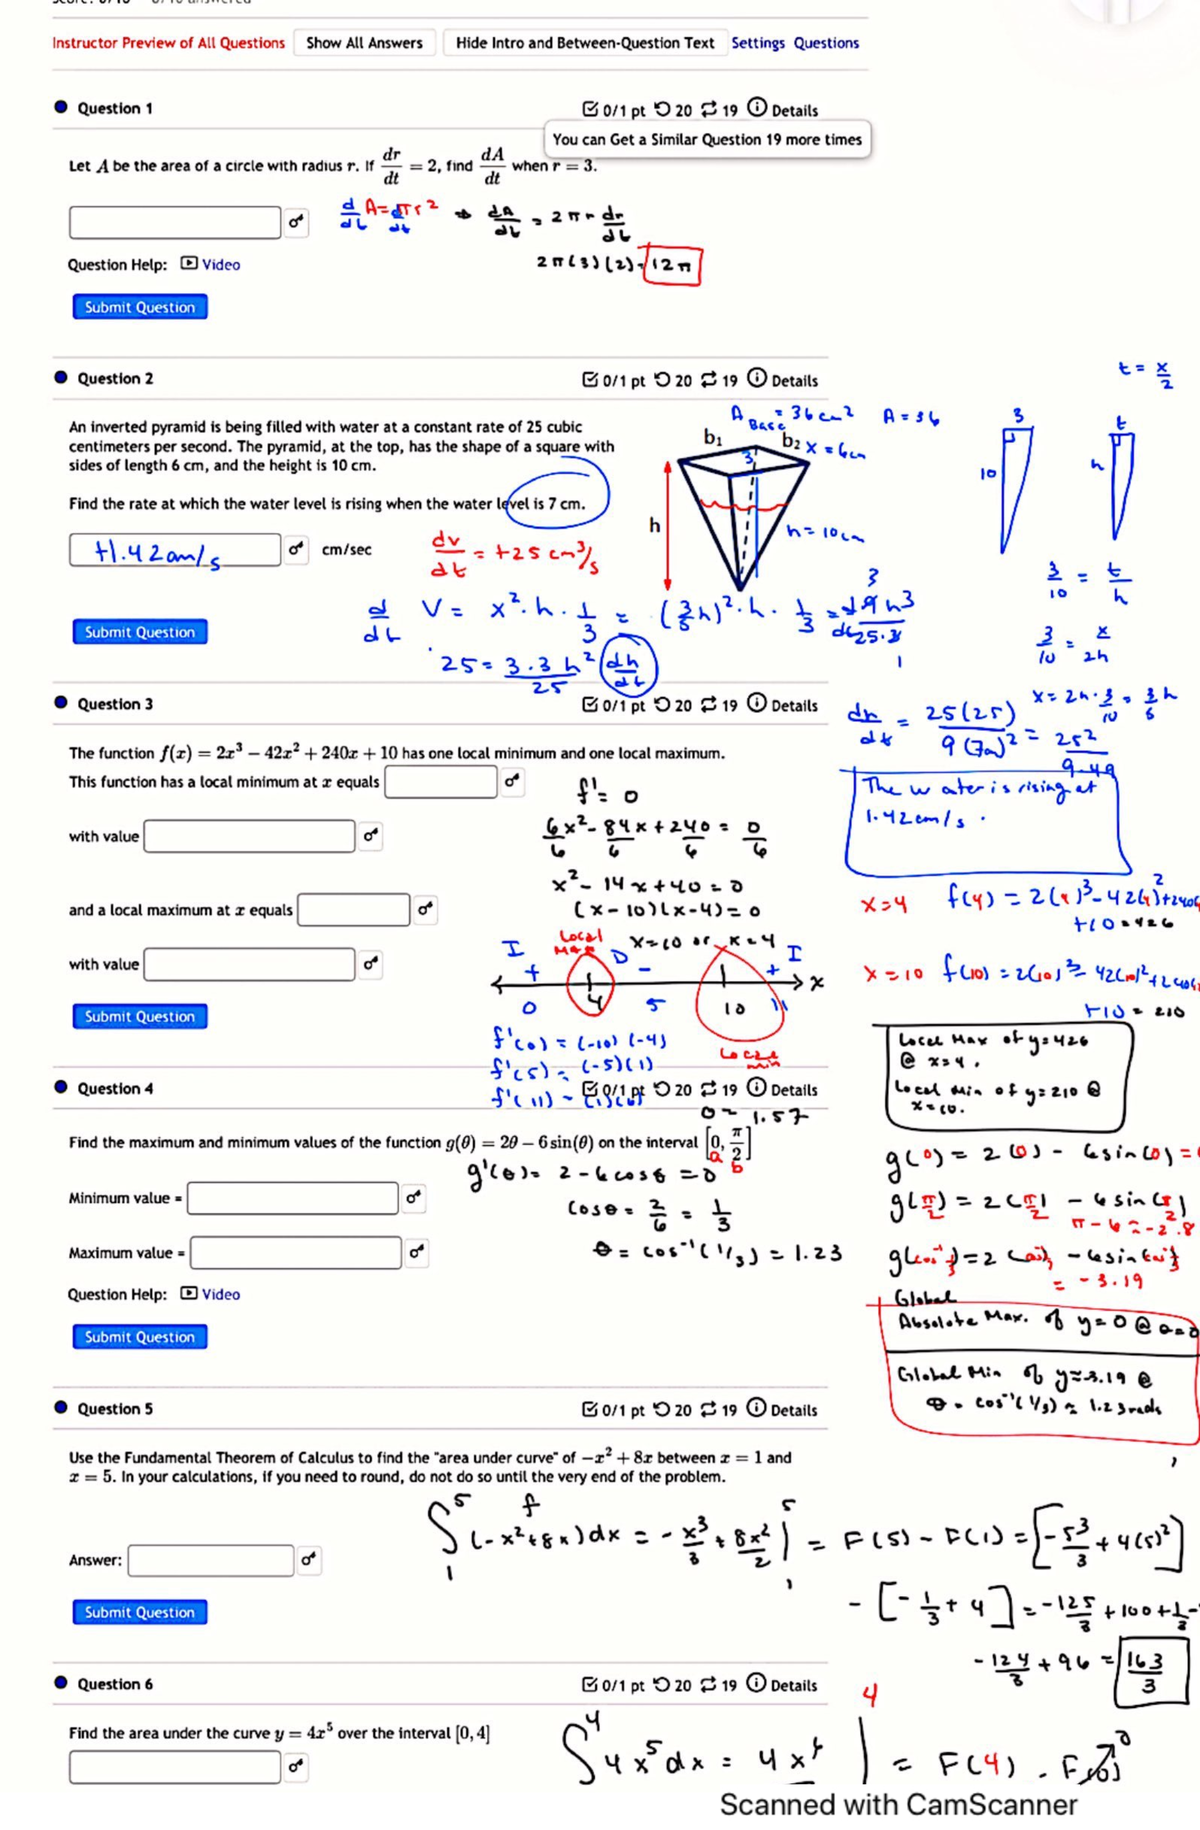 Instructor Preview of All Questions Show All Answers Hide Intro and Between-Question Text Settings Questions
Question 1 0/1 pt 20 19 Details
You can Get a Similar Question 19 more times
Let A be the area of a circle with radius r. If dr/dt = 2, find dA/dt when r = 3.
d/dt A = πr² d/dt ⇒ dA/dt = 2πr dr/dt
Question Help: Video
2π(3)(2) = 12π
Submit Question
Question 2 0/1 pt 20 19 Details
t = x/2
An inverted pyramid is being filled with water at a constant rate of 25 cubic
centimeters per second. The pyramid, at the top, has the shape of a square with
sides of length 6 cm, and the height is 10 cm.
Find the rate at which the water level is rising when the water level is 7 cm.
A Base = 36 cm² A = 36
b₁ b₂ x = 6cm
3
h
h = 10cm
3 10
t h
+1.42 cm/s cm/sec
dv/dt = +25 cm³/s
3/10 = t/h
d/dt V = x²·h·1/3 = (3/5 h)²·h·1/3 = d/dt 9h³/25·3
3/10 = x/2h
Submit Question
25 = 3·3h²/25 (dh/dt)
x = 2h·3/10 = 3/5 h
Question 3 0/1 pt 20 19 Details
dh/dt = 25(25)/9(7)² = 25²/9·49
The water is rising at
1.42cm/s.
The function f(x) = 2x³ − 42x² + 240x + 10 has one local minimum and one local maximum.
This function has a local minimum at x equals
with value
and a local maximum at x equals
with value
Submit Question
f' = 0
6x²/6 - 84x/6 + 240/6 = 0/6
x² - 14x + 40 = 0
(x-10)(x-4) = 0
x=10 or x=4
Local Max
I D I
+ - + x
4 10
0 5 11
f'(0) = (-10)(-4)
f'(5) = (-5)(1)
Local min
x=4 f(4) = 2(4)³-42(4)²+240(
+10 = 426
x=10 f(10) = 2(10)³-42(10)²+240(
+10 = 210
Local Max of y=426
@ x=4.
Local Min of y=210 @
x=10.
Question 4 0/1 pt 20 19 Details
1.57
Find the maximum and minimum values of the function g(θ) = 2θ − 6 sin(θ) on the interval [0, π/2]
a b
g'(θ) = 2 - 6cosθ = 0
Minimum value =
cosθ = 2/6 = 1/3
Maximum value =
θ = cos⁻¹(1/3) = 1.23
Question Help: Video
Submit Question
g(0) = 2(0) - 6sin(0) =
g(π/2) = 2(π/2) - 6sin(π/2)
π-6 ≈ -2.8
= -3.19
Global
Absolute Max. of y=0 @
Global Min of y≈-3.19 @
θ = cos⁻¹(1/3) ≈ 1.23rads
Question 5 0/1 pt 20 19 Details
Use the Fundamental Theorem of Calculus to find the "area under curve" of −x² + 8x between x = 1 and
x = 5. In your calculations, if you need to round, do not do so until the very end of the problem.
f
∫₁⁵ (-x²+8x)dx = -x³/3 + 8x²/2 |₁⁵ = F(5) - F(1) = [-5³/3 + 4(5)²]
Answer:
- [-1/3 + 4] = -125/3 + 100 + 1/3 -
Submit Question
-124/3 + 96 = 163/3
Question 6 0/1 pt 20 19 Details
Find the area under the curve y = 4x⁵ over the interval [0, 4]
∫⁴ 4x⁵dx = 4x⁶ |⁴ = F(4) - F(0) 0
Scanned with CamScanner